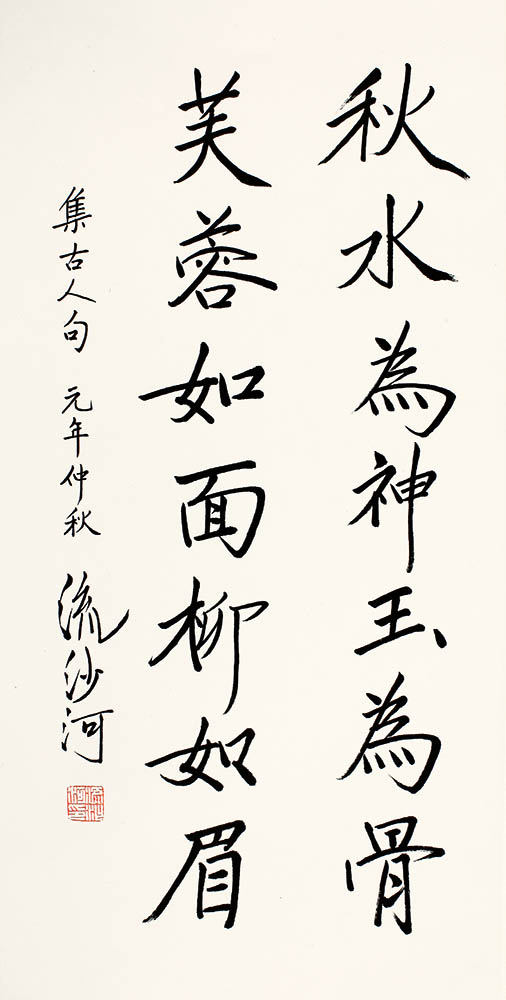 秋水為神玉為骨
芙蓉如面柳如眉
集古人句 元年仲秋 流沙河